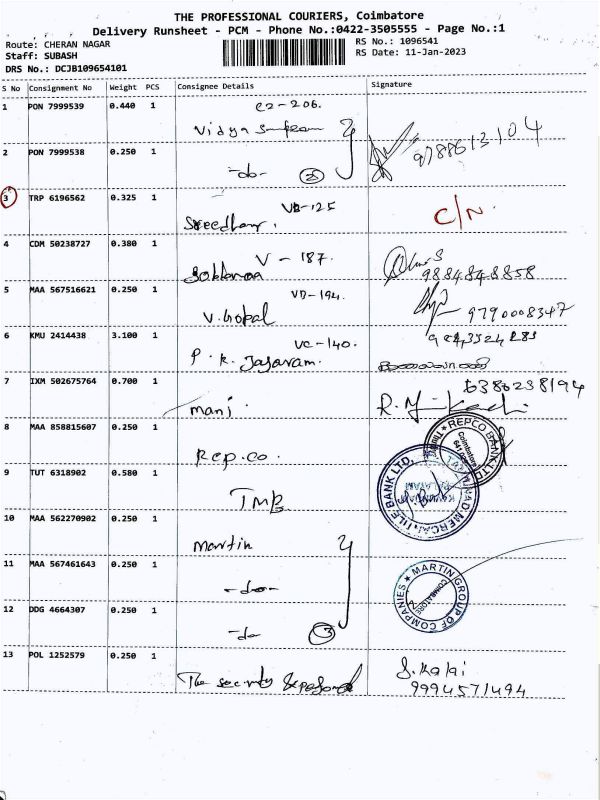 THE PROFESSIONAL COURIERS, Coimbatore
Delivery Runsheet - PCM - Phone No.:0422-3505555 - Page No.:1
Route: CHERAN NAGAR RS No.: 1096541
Staff: SUBASH RS Date: 11-Jan-2023
DRS No.: DCJB109654101
S No Consignment No Weight PCS Consignee Details Signature
1 PON 7999539 0.440 1 C2-206.
Vidya
2 PON 7999538 0.250 1 -do- 2 9788613104
3 TRP 6196562 0.325 1 VB-125 C/N.
4 CDM 50238727 0.380 1 V-187.
9884848858
5 MAA 567516621 0.250 1 VD-194.
V. Gopal 9790008347
6 KMU 2414438 3.100 1 VC-140.
P. K. Jayaram.
7 IXM 502675764 0.700 1 6380238194
mani.
8 MAA 858815607 0.250 1
Rep.co. REPCO BANK LTD
Coimbatore
9 TUT 6318902 0.580 1
TMB TAMILNAD MERCANTILE BANK LTD.
10 MAA 562270902 0.250 1
Martin
11 MAA 567461643 0.250 1 MARTIN GROUP OF COMPANIES
COIMBATORE
-do-
12 DDG 4664307 0.250 1
-do- 3
13 POL 1252579 0.250 1 S. Kalai
The security 9994571494